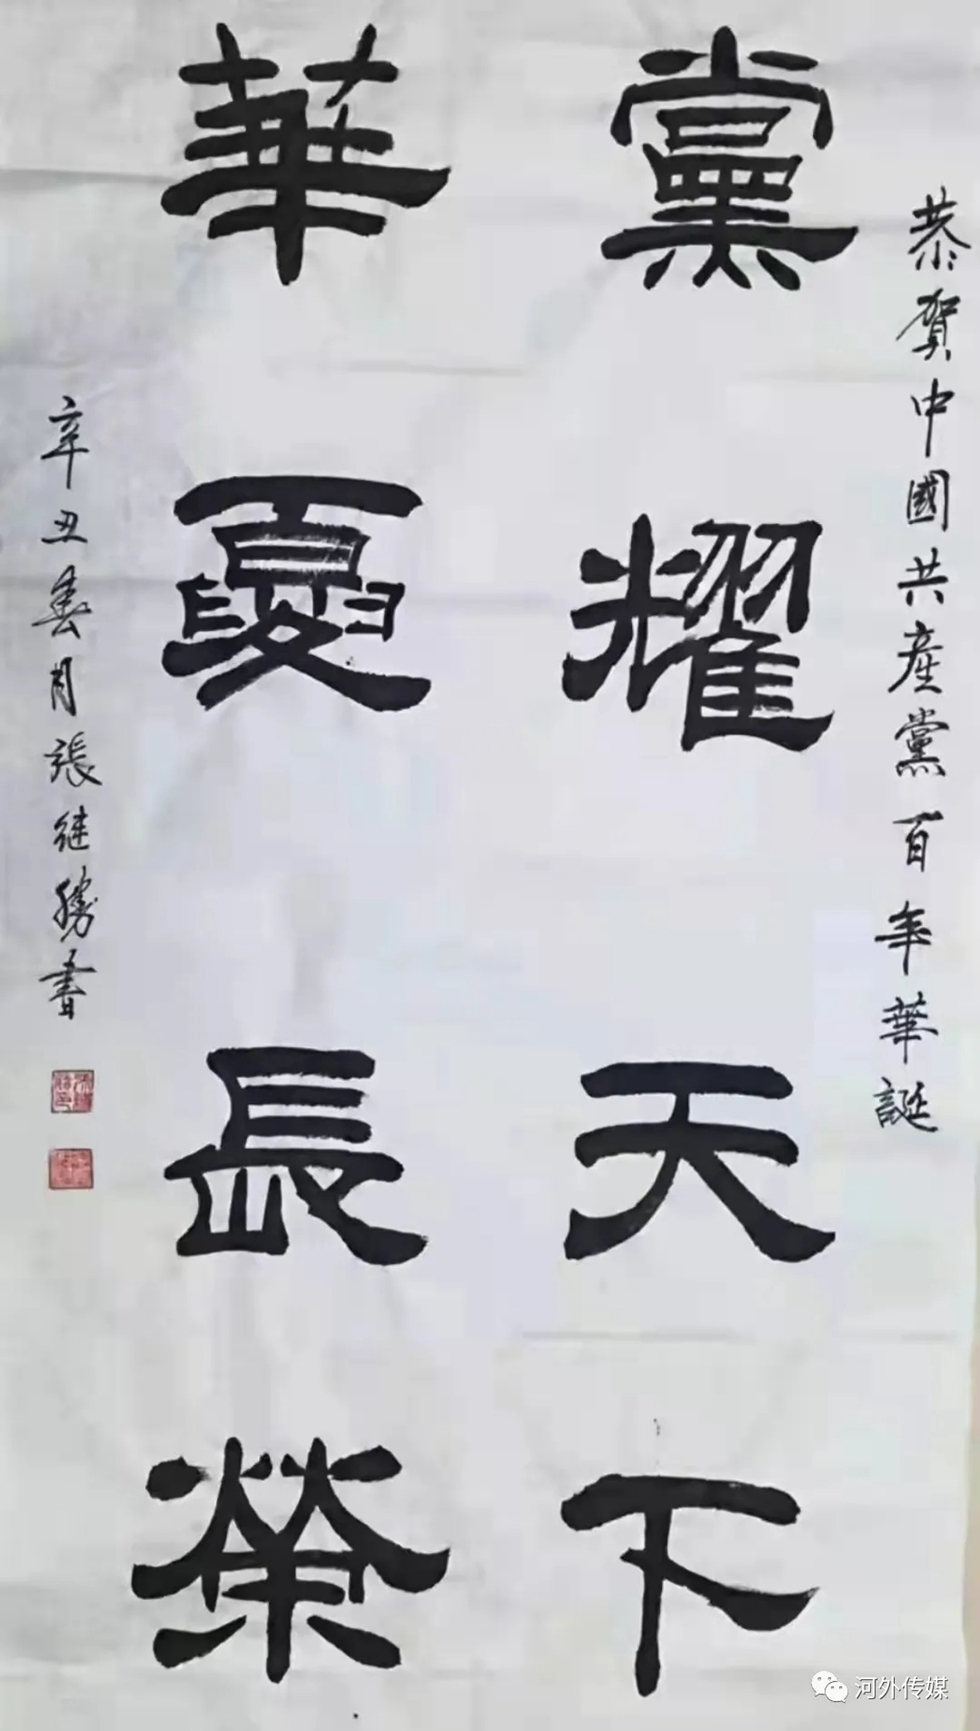 恭贺中國共產黨百年華誕
黨耀天下
華夏長榮
辛丑春月張继勝書
河外传媒